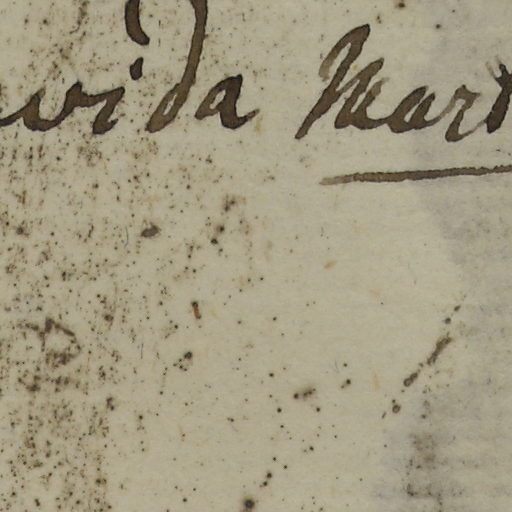 vida Mart